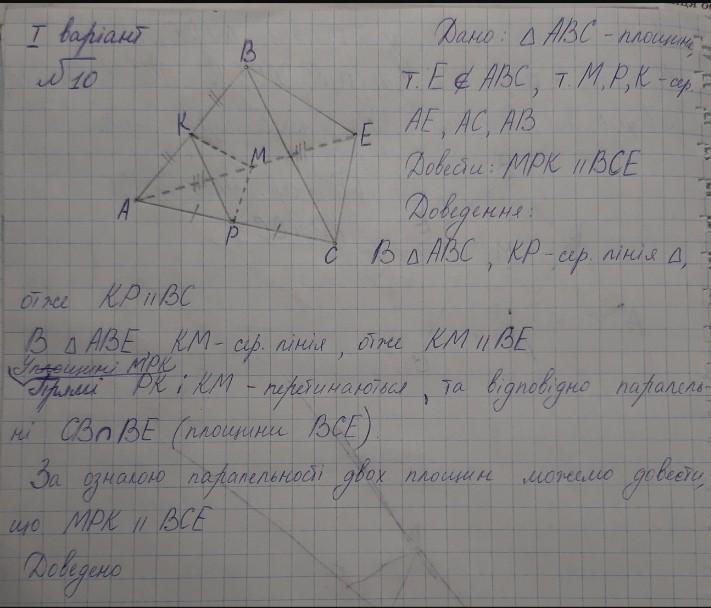 І варіант
№10
Дано: △ ABC - площина,
т. E ∉ ABC, т. M, P, K - сер.
AE, AC, AB
Довести: MPK || BCE
Доведення:
В △ ABC, KP - сер. лінія △,
отже KP || BC
В △ ABE, KM - сер. лінія, отже KM || BE
У площині MPK
Прямі PK і KM - перетинаються, та відповідно паралель-
ні CB ∩ BE (площини BCE)
За ознакою паралельності двох площин можемо довести,
що MPK || BCE
Доведено
B
K
M
E
A
P
C